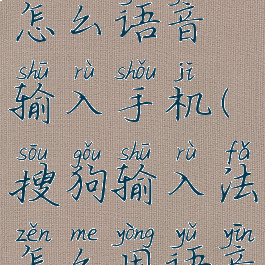 怎么语音
shū rù shǒu jī
输入手机(
sōu gǒu shū rù fǎ
搜狗输入法
zěn me yòng yǔ yīn
怎么用语音